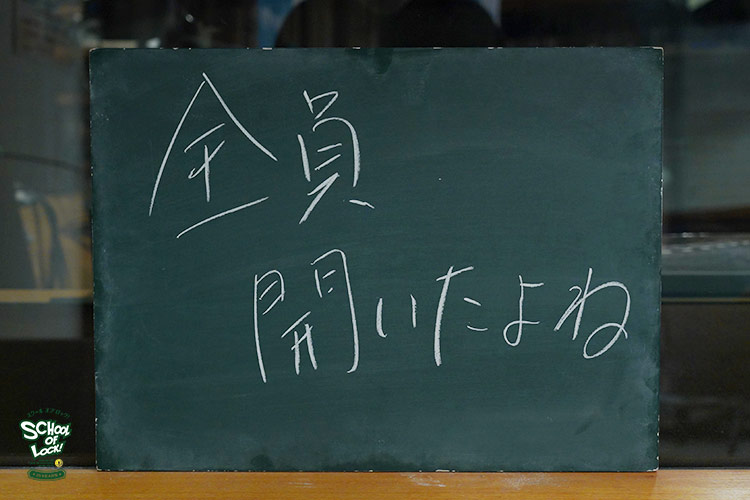 全員
開いたよね
SCHOOL
OF
LOCK!